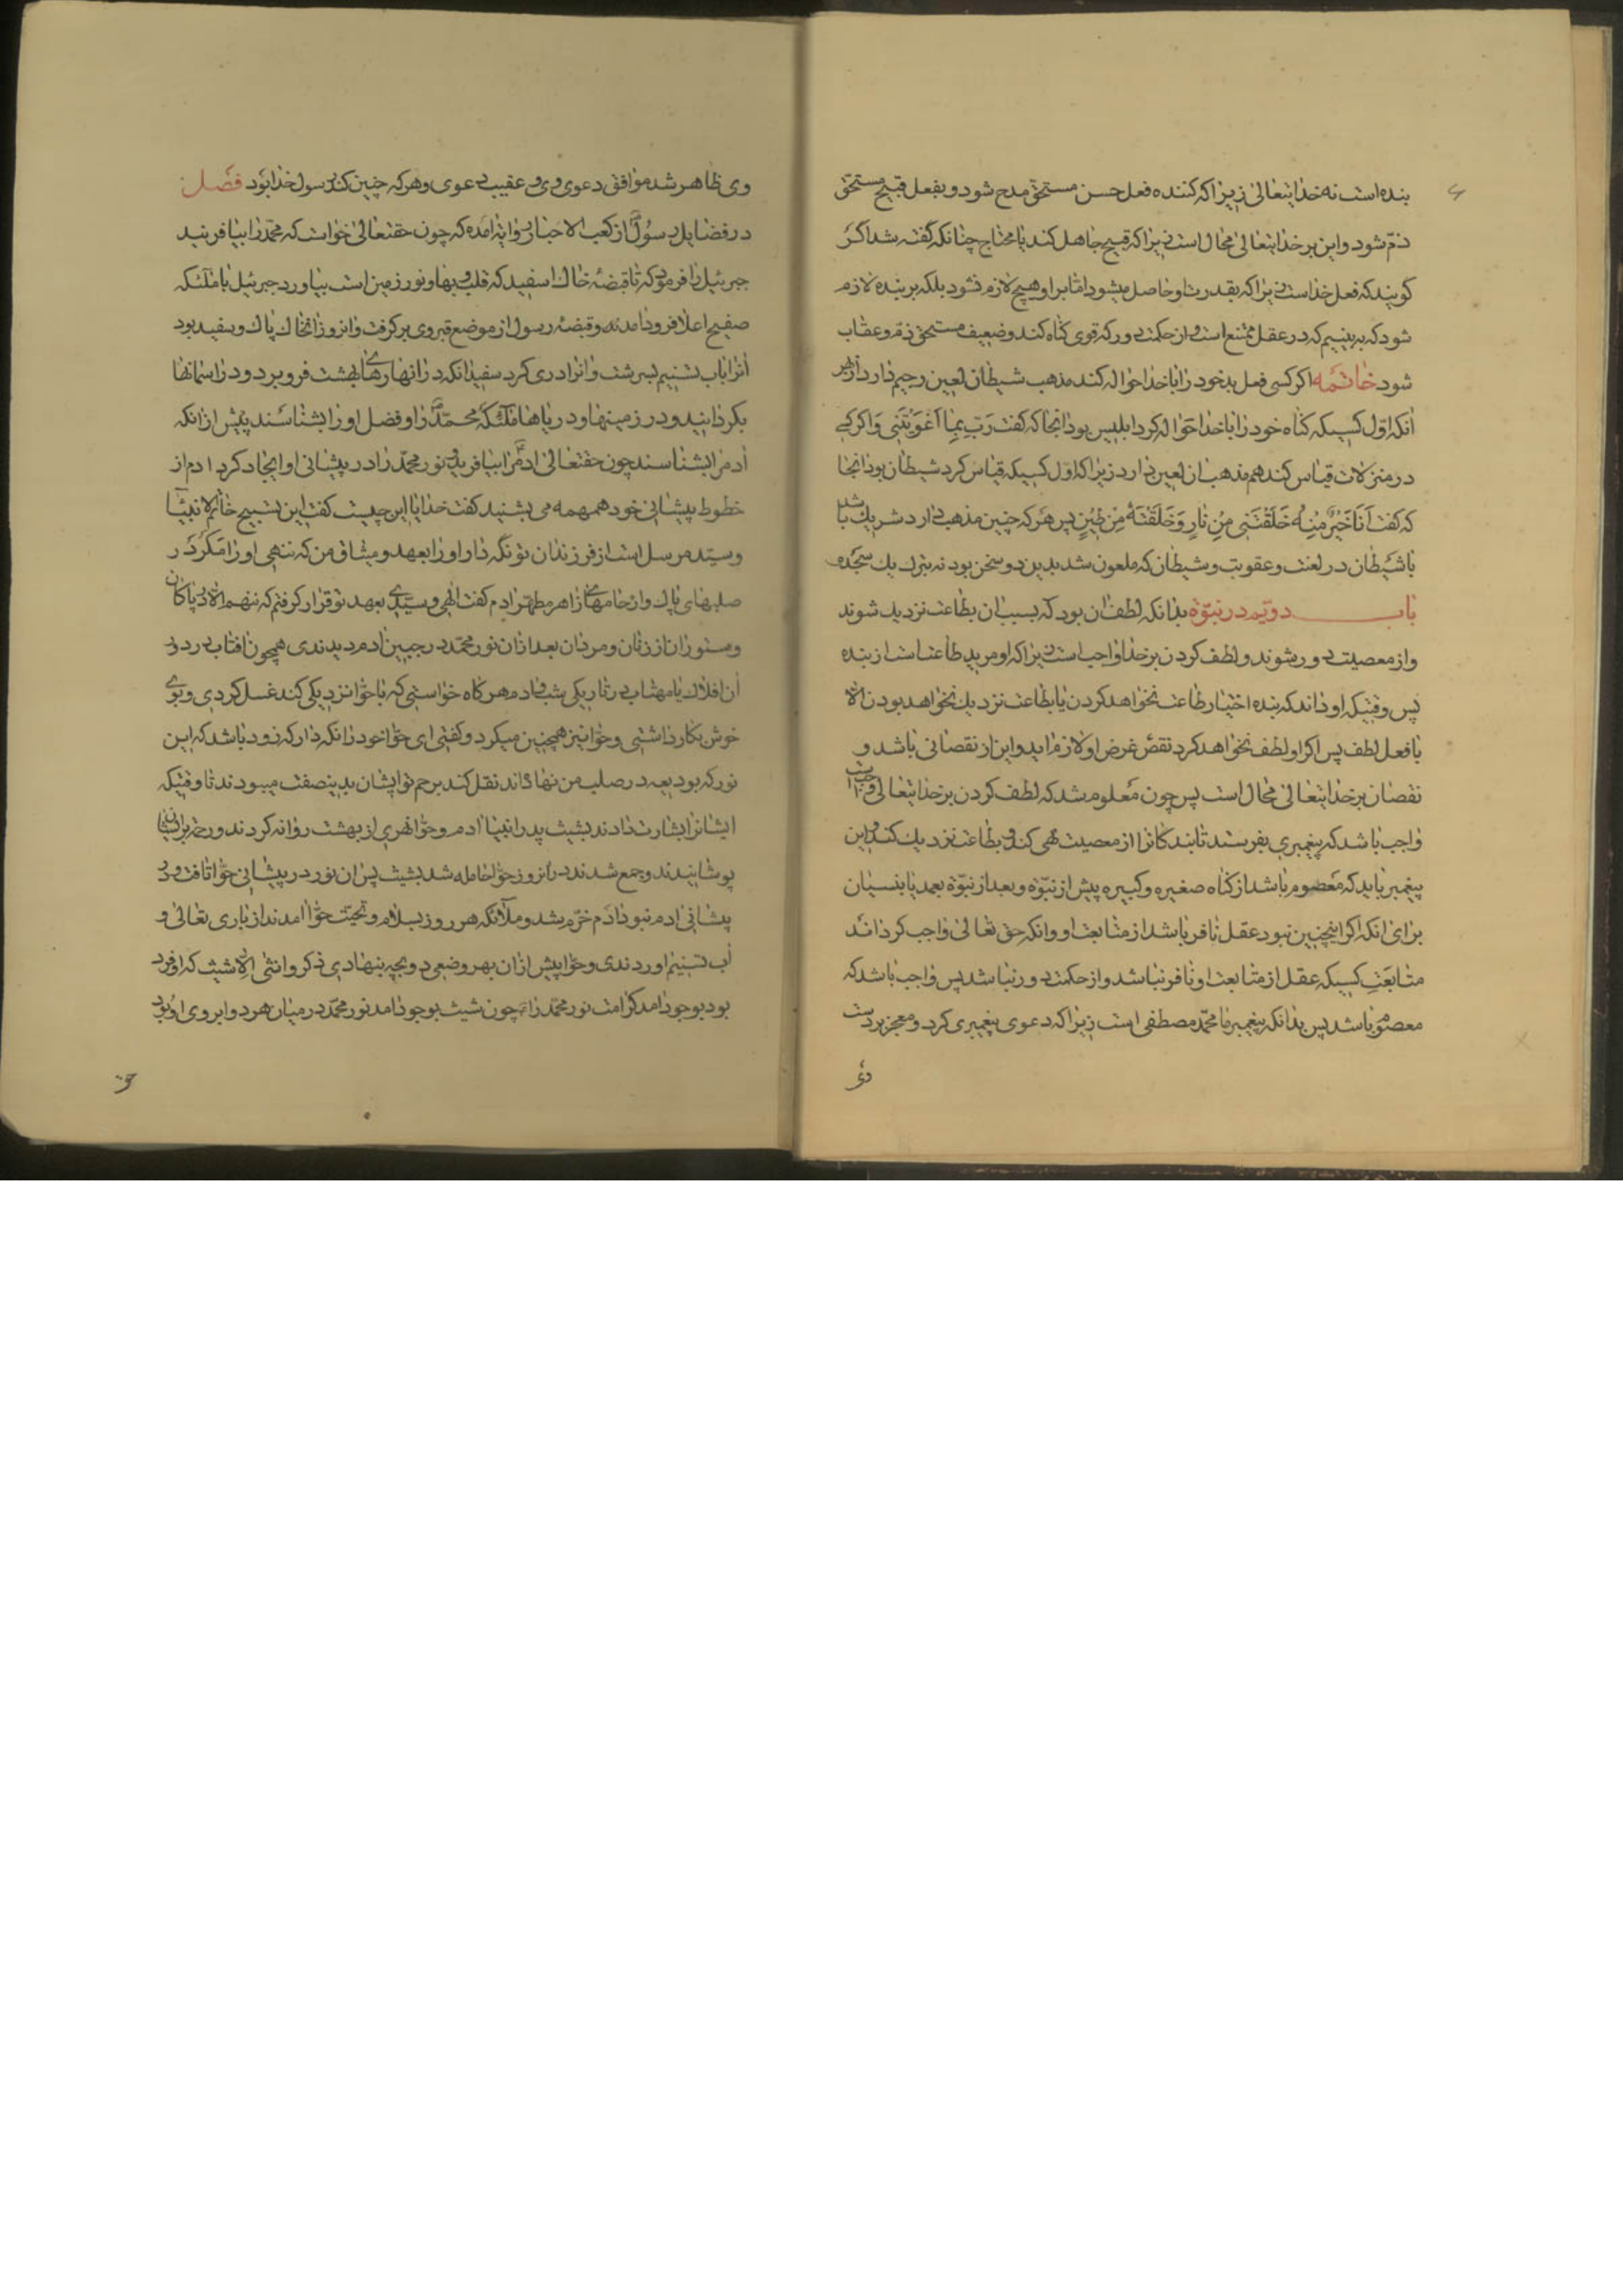 بنده است نه خدایتعالی زیرا که کننده فعل حسن مستحق مدح شود و بفعل قبیح مستحق
ذمّ شود و این بر خدایتعالی محال است زیرا که قبیح جاهل کند یا محتاج چنانکه گفته شد اگر
کویند که فعل خداست زیرا که بقدرت او حاصل میشود امّا بر او هیچ لازم نشود بلکه بر بنده لازم
شود که بر بینیم که در عقل ممتنع است و از حکمت دور که قوی کناه کند و ضعیف مستحق ذمّ و عقاب
شود خاتمه اکر کسی فعل بد خود را با خدا حواله کند مذهب شیطان لعین رجیم دارد از بهر
آنکه اوّل کسیکه کناه خود را با خدا حواله کرد ابلیس بود انجا که کفت رَبِّ بِمٰا اَغْوَیْتَنی و اکر کسی
در منزلات قیاس کند هم مذهب ان لعین دارد زیرا که اوّل کسیکه قیاس کرد شیطان بود انجا
که کفت اَنَا خَیْرٌ مِنْهُ خَلَقْتَنی مِنْ نٰارٍ وَخَلَقْتَهُ مِنْ طینٍ پس هر که چنین مذهب دارد شریک باشد
با شیطان در لعنت و عقوبت و شیطان که ملعون شد بدین دو سخن بود نه بترک یک سجده
باب دویّم در نبوّة بدانکه لطف ان بود که بسبب ان بطاعت نزدیک شوند
و از معصیت دور شوند و لطف کردن بر خدا واجب است زیرا که او مرید طاعت است از بنده
پس وقتیکه او داند که بنده اختیار طاعت نخواهد کردن یا بطاعت نزدیک نخواهد بودن الّا
با فعل لطف پس اکر او لطف نخواهد کرد نقض غرض او لازم اید و این از نقصانی باشد و
نقصان بر خدایتعالی محال است پس چون معلوم شد که لطف کردن بر خدایتعالی واجب است
واجب باشد که پیغمبری بفرستد تا بندکانرا از معصیت نهی کند و بطاعت نزدیک کند و این
پیغمبر باید که معصوم باشد از کناه صغیره و کبیره پیش از نبوّة و بعد از نبوّة بعمد یا بنسیان
برای انکه اکر اینچنین نبود عقل نافر باشد از متابعت او و انکه حق تعالی واجب کرداند
متابعت کسیکه عقل از متابعت او نافر نباشد و از حکمت دور نباشد پس واجب باشد که
معصوم باشد پس بدانکه پیغمبر ما محمّد مصطفی است زیرا که دعوی پیغمبری کرد و معجز بر دست
وی
وی ظاهر شد موافق دعوی وی و عقیب دعوی و هر که چنین کند رسول خدا بود فصل
در فضایل رسول از کعب الاحبار روایه امده که چون حقتعالی خواست که محمّد را بیافریند
جبرئیل را فرمود که تا قبضهٔ خاک اسفید که قلب و بها و نور زمین است بیاورد جبرئیل با ملئکه
صفیح اعلا فرود امدند و قبضهٔ رسول از موضع قبر وی برکرفت و انروز انخاک پاک و سفید بود
انرا باب تسنیم بسرشت و انرا دری کرد سفید انکه در انهارهای بهشت فرو برد و در اسمانها
بکردانیند و در زمینها و دریاها ملئکه محمّد را و فضل او را بشناسند پیش از انکه
آدم را بشناسند چون حقتعالی ادم را بیافرید نور محمّد را در پیشانی او ایجاد کرد ادم از
خطوط پیشانی خود همهمه می بشنید کفت خدایا این چیست کفت این تسبیح خاتم الانبیا
و سیّد مرسل است از فرزندان تو نکه دار او را بعهد و میثاق من که ننهی او را مکر در
صلبهای پاک و ارحامهای زاهر مطهّر ادم کفت الهی و سیّدی بعهد تو قرار کرفتم که ننهم الّا در پاکان
و مستوران از زنان و مردان بعد ازان نور محمّد در جبین ادم دیدندی همچون افتاب در دور
ان افلاک یا مهتاب در تاریکی شب و ادم هر کاه خواستی که با حوّا نزدیکی کند غسل کردی و بوی
خوش بکار داشتی و حوّا نیز همچنین میکرد و کفتی ای حوّا خود را نکه دار که زود باشد که این
نور که بودیعه در صلب من نهاده‌اند نقل کند برحم تو ایشان بدینصفت میبودند تا وقتیکه
ایشانرا بشارت دادند بشیث پدر انبیا ادم و حوّا نهری از بهشت روانه کردند و رحمة بر ایشان
پوشانیدند و جمع شدند در انروز حوّا حامله شد بشیث پس ان نور در پیشانی حوّا تافت و در
پیشانی ادم نبود ادم خرّم شد و ملائکه هر روز بسلام و تحیّت حوّا امدند از باری تعالی و
آب تسنیم اوردندی و حوّا پیش ازان بهر وضعی دو بچه بنهادی ذکر و انثی الّا شیث که او فرد
بود بوجود امد کرامت نور محمّد را چون شیث بوجود امد نور محمّد در میان هر دو ابروی او بود